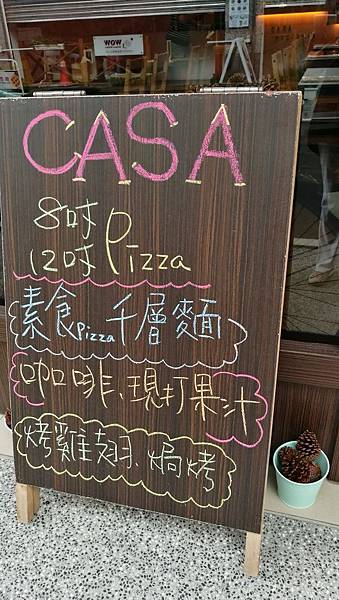 WOW
CASA
8吋
12吋 Pizza
素食Pizza 千層麵
咖啡、現打果汁
烤雞翅、焗烤